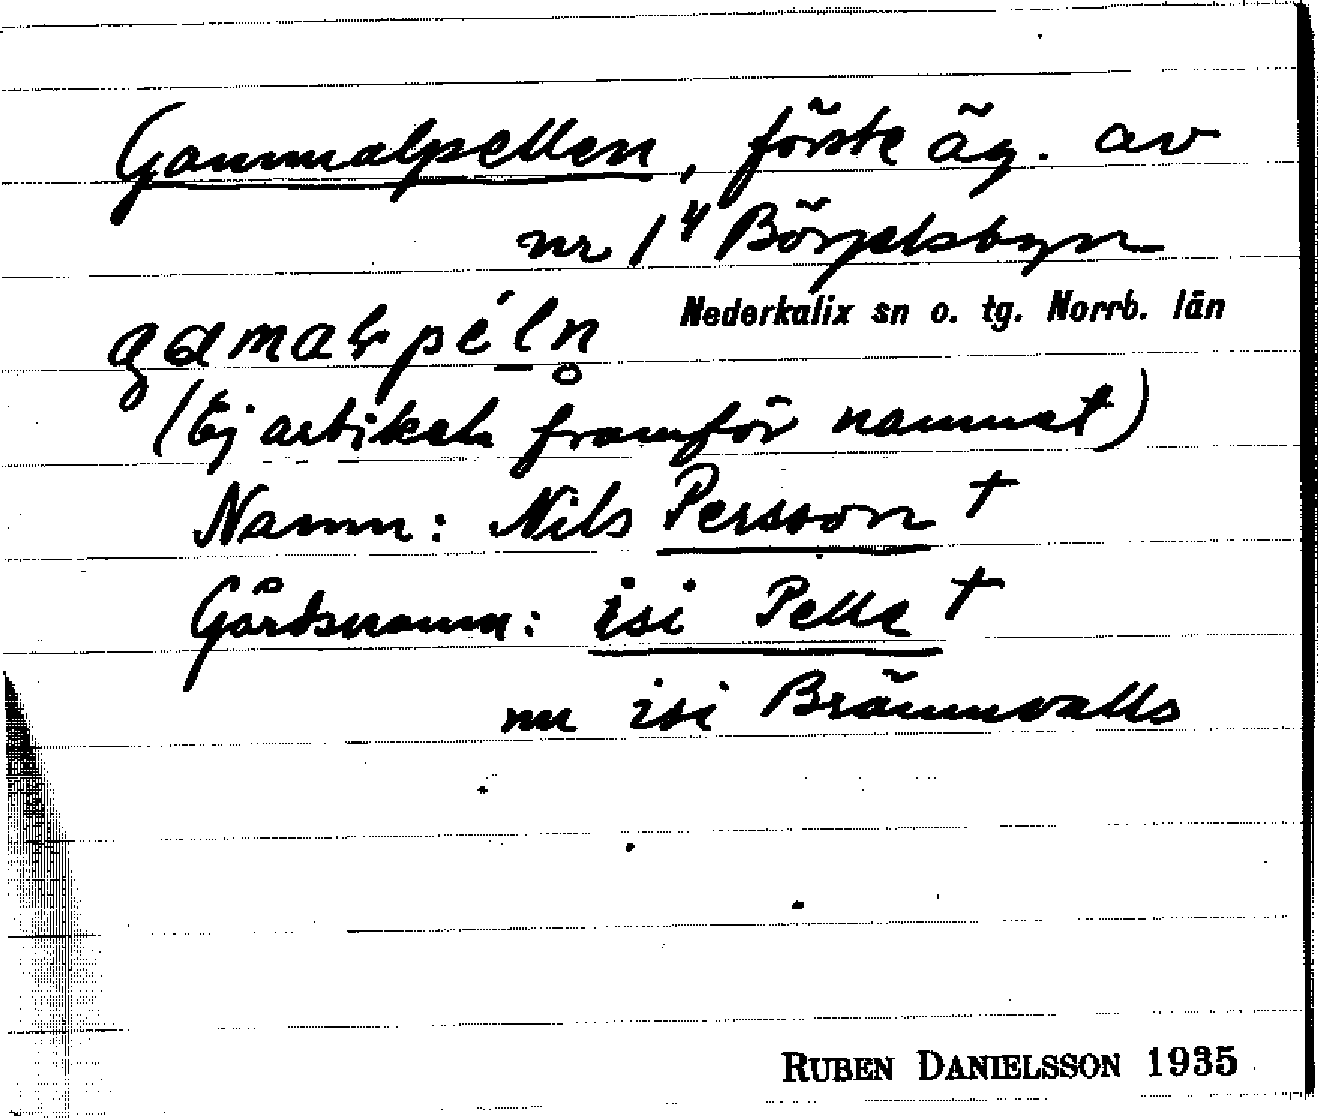 Gammalpellen, förste äg. av
nr 1⁴ Börjelsbyn
Nederkalix sn o. tg. Norrb. län
gamalpéln̥
(Ej artikeln framför namnet)
Namn: Nils Persson †
Gårdsnamn: isi Pella †
nu isi Brännvalls
RUBEN DANIELSSON 1935